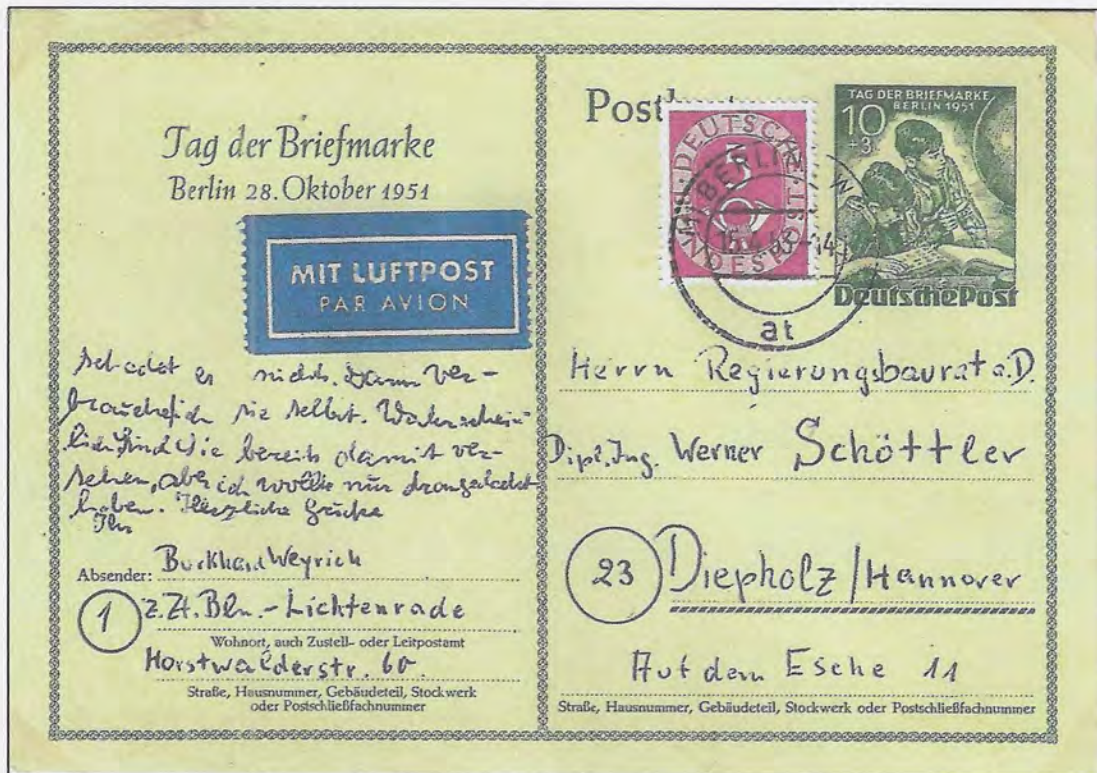 Tag der Briefmarke
Berlin 28. Oktober 1951
MIT LUFTPOST
PAR AVION
schadet es nichts. Dann ver-
brauche ich sie selbst. Wahrschein-
lich sind Sie bereits damit ver-
sehen, aber ich wollte nur drangedacht
haben. Herzliche Grüße
Ihr
Absender: Burkhard Weyrich
1 z.Zt. Bln.-Lichtenrade
Wohnort, auch Zustell- oder Leitpostamt
Horstwalderstr. 60
Straße, Hausnummer, Gebäudeteil, Stockwerk
oder Postschließfachnummer
TAG DER BRIEFMARKE
BERLIN 1951
10
+3
Deutsche Post
DEUTSCHE
BUNDESPOST
BERLIN W
at
Herrn Regierungsbaurat a.D.
Dipl.Ing. Werner Schöttler
23 Diepholz/Hannover
Auf dem Esche 11
Straße, Hausnummer, Gebäudeteil, Stockwerk oder Postschließfachnummer